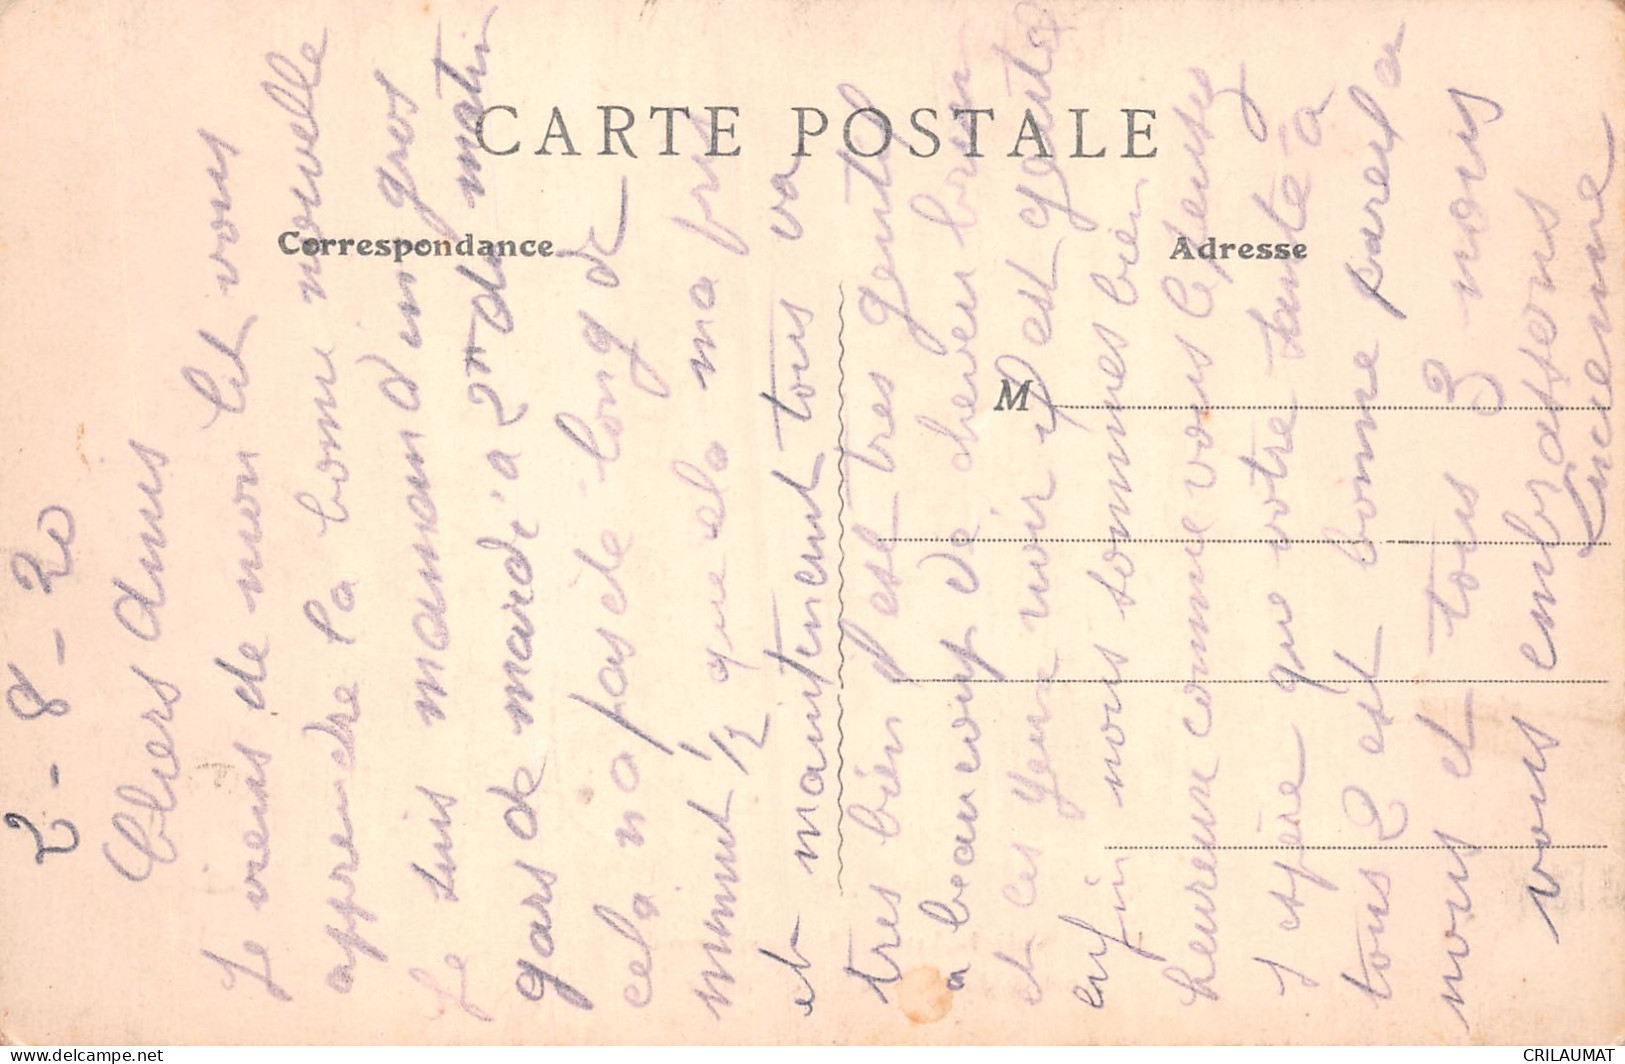 CARTE POSTALE
Correspondance
Adresse
M
2-8-20
Chers amis
Je viens de mon lit vous
apprendre la bonne nouvelle
Je suis maman d'un gros
gars de mardi a 2h du matin
cela n a pas ete long de
minuit 1/2 que ela ma pris
et maintenent tous va
tres bien l est tres gentil
a beaucoup de cheveu brun
et les yeux noir il est
enfin nous sommes bien
heureux comme vous le pensez
J espère que votre santé à
tous 2 est bonne pareil a
nous et tous 3 nous
vous embrassons
Lucienne
CRILAUMAT